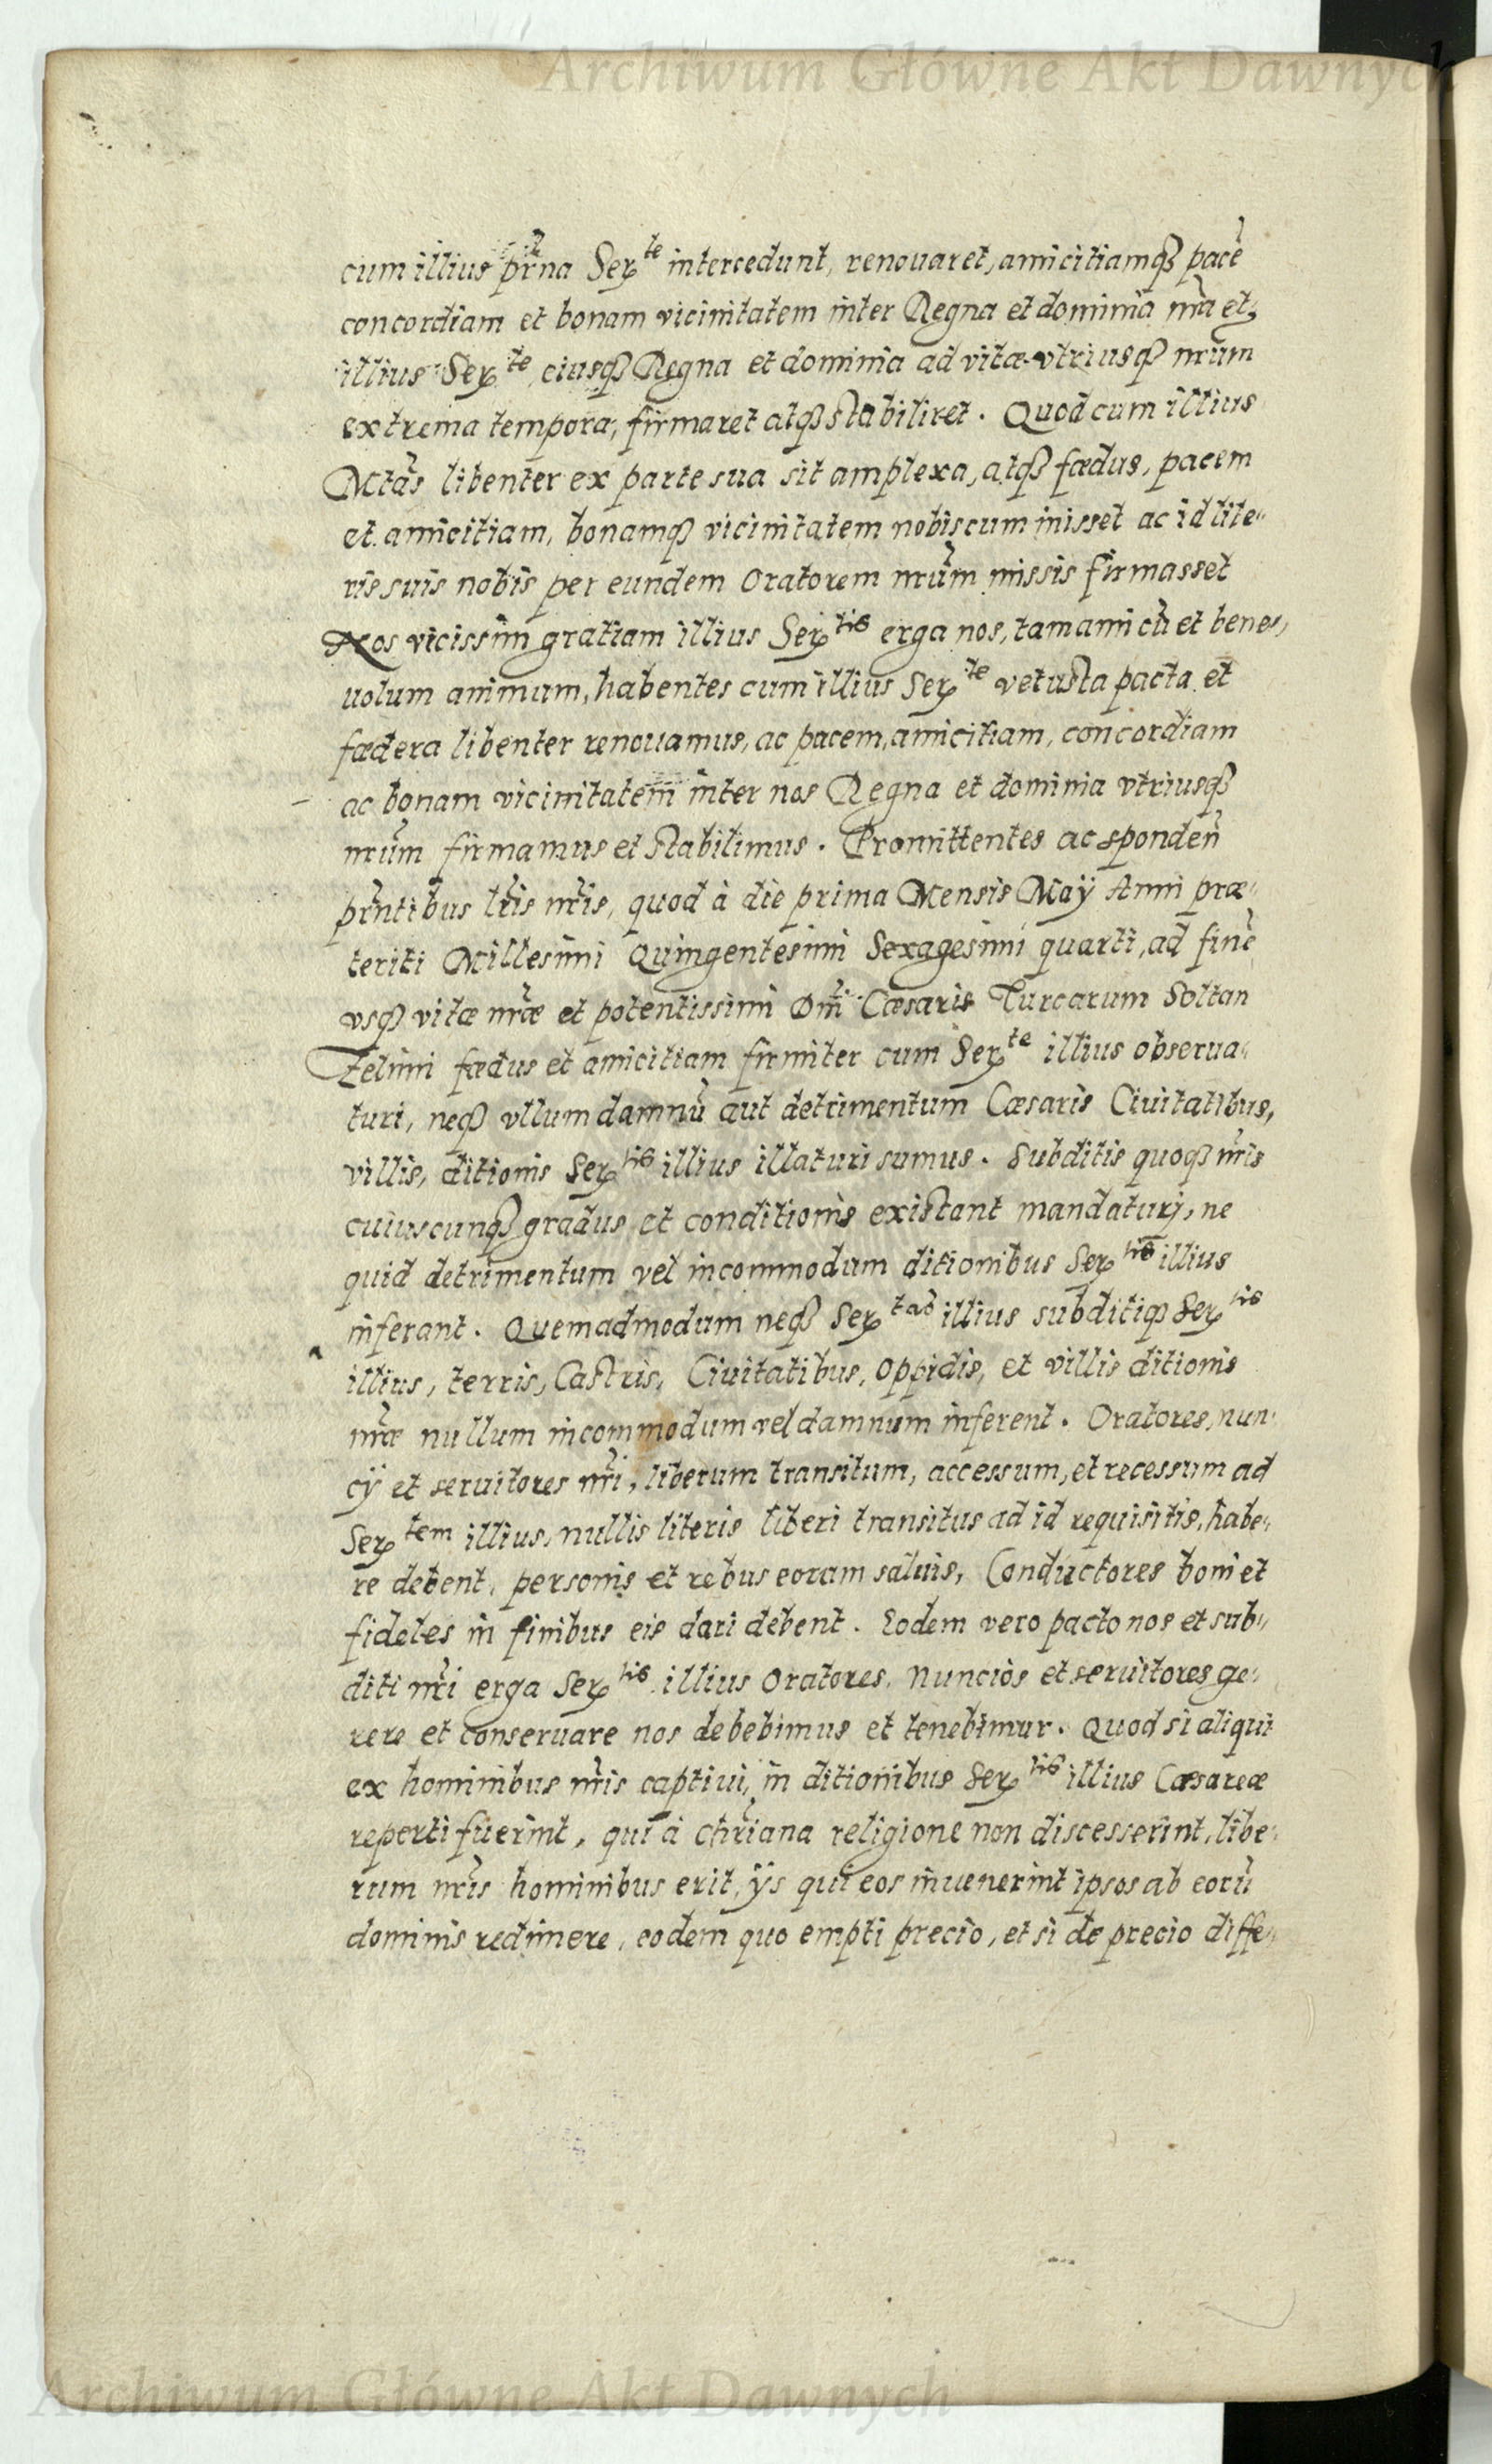 Archiwum Główne Akt Dawnych
cum illius pr̃na Serte intercedunt, renouaret, amicitiamq̃ pacẽ
concordiam et bonam vicinitatem inter Regna et dominia nr̃a et
illius Serte, eiusq̃ Regna et dominia ad vitæ vtriusq̃ nrũm
extrema tempora, firmaret atq̃ stabiliret. Quod cum illius
Mtãs libenter ex parte sua sit amplexa, atq̃ fœdus, pacem
et amicitiam, bonamq̃ vicinitatem nobiscum inisset ac id lite⸗
ris suis nobis per eundem Oratorem nrũm missis firmasset
Nos vicissim gratiam illius Sertis erga nos, tam amicũ et bene⸗
uolum animum, habentes cum illius Serte vetusta pacta et
fœdera libenter renouamus, ac pacem, amicitiam, concordiam
ac bonam vicinitatem inter nos Regna et dominia vtriusq̃
nrũm firmamus et stabilimus. Promittentes ac spondeñ
pr̃ntibus lr̃is nr̃is, quod à die prima Mensis Maÿ Anni præ⸗
teriti Millesimi Quingentesimi Sexagesimi quarti, ad finẽ
vsq̃ vitæ nr̃æ et potentissimi Dnĩ Cæsaris Turcarum Soltan
Zelimi fœdus et amicitiam firmiter cum Serte illius obserua⸗
turi, neq̃ vllum damnũ aut detrimentum Cæsaris Ciuitatibus,
villis, ditionis Sertis illius illaturi sumus. Subditis quoq̃ nr̃is
cuiuscunq̃ gradus et conditionis existant mandaturi, ne
quid detrimentum vel incommodum ditionibus Sertis illius
inferant. Quemadmodum neq̃ Sertas illius subditiq̃ Sertis
illius, terris, Castris, Ciuitatibus, Oppidis, et villis ditionis
nr̃æ nullum incommodum vel damnum inferent. Oratores, nun⸗
cÿ et seruitores nr̃i, liberum transitum, accessum, et recessum ad
Sertem illius, nullis literis liberi transitus ad id requisitis, habe⸗
re debent, personis et rebus eorum saluis, Conductores boni et
fideles in finibus eis dari debent. Eodem vero pacto nos et sub⸗
diti nr̃i erga Sertis illius Oratores, Nuncios et seruitores ge⸗
rere et conseruare nos debebimus et tenebimur. Quod si aliqui
ex hominibus nr̃is captiui, in ditionibus Sertis illius Cæsareæ
reperti fuerint, qui à Chr̃iana religione non discesserint, libe⸗
rum nr̃is hominibus erit, ÿs qui eos inuenerint ipsos ab eorũ
dominis redimere, eodem quo empti precio, et si de precio diffe⸗
Archiwum Główne Akt Dawnych